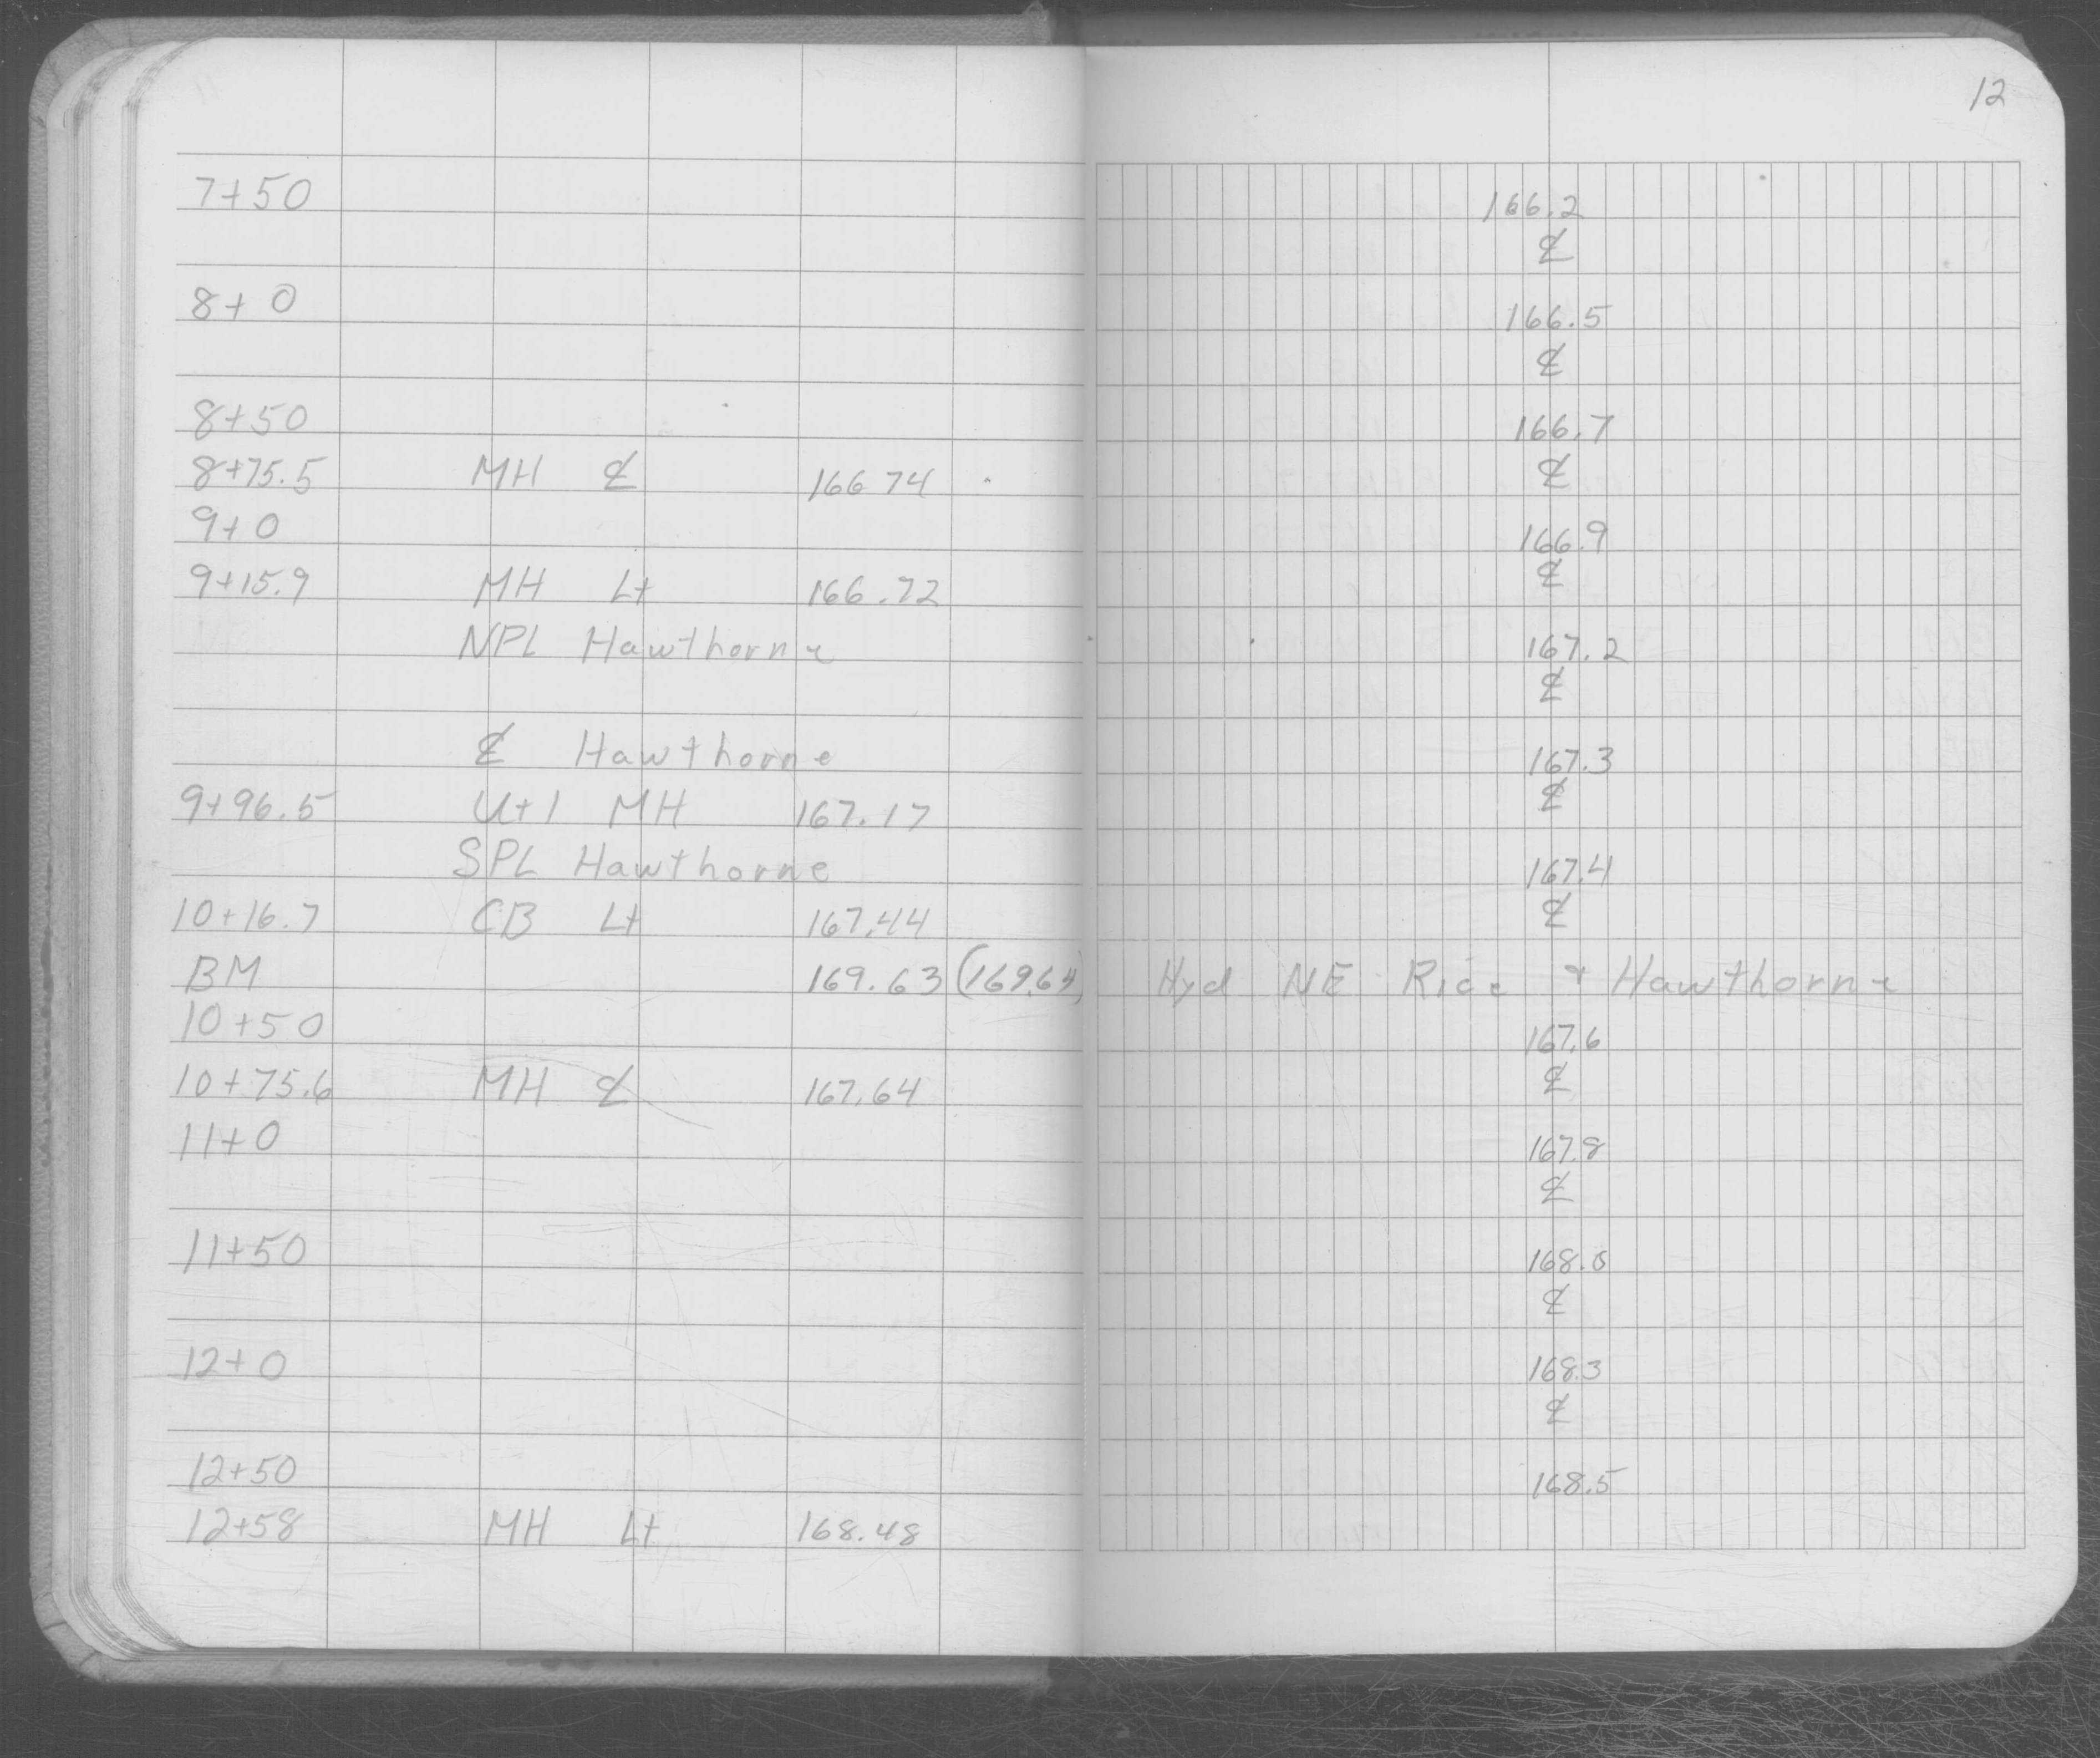 12
7+50 166.2
℄
8+0 166.5
℄
8+50 166.7
8+75.5 MH ℄ 166 74 ℄
9+0 166.9
9+15.9 MH Lt 166.72 ℄
NPL Hawthorne 167.2
℄
℄ Hawthorne 167.3
9+96.5 Utl MH 167.17 ℄
SPL Hawthorne 167.4
10+16.7 CB Lt 167.44 ℄
BM 169.63 (169.64) Hyd NE Rice & Hawthorne
10+50 167.6
10+75.6 MH ℄ 167.64 ℄
11+0 167.8
℄
11+50 168.0
℄
12+0 168.3
℄
12+50 168.5
12+58 MH Lt 168.48